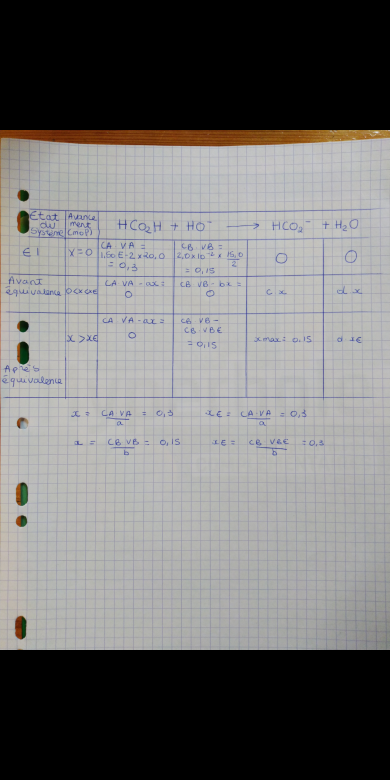 Etat du Système
Avance ment (mol)
HCO₂H + HO⁻ → HCO₂⁻ + H₂O
E I
x=0
CA VA = 1,50 E-2 x 20,0 = 0,3
CB VB = 2,0x10⁻² x 15,0/2 = 0,15
0
0
Avant équivalence
0<x<xE
CA VA - ax = 0
CB VB - bx = 0
c x
d x
Après équivalence
x > xE
CA VA - ax = 0
CB VB - CB VBE = 0,15
xmax = 0,15
d xE
x = CA VA / a = 0,3
xE = CA VA / a = 0,3
x = CB VB / b = 0,15
xE = CB VBE / b = 0,3